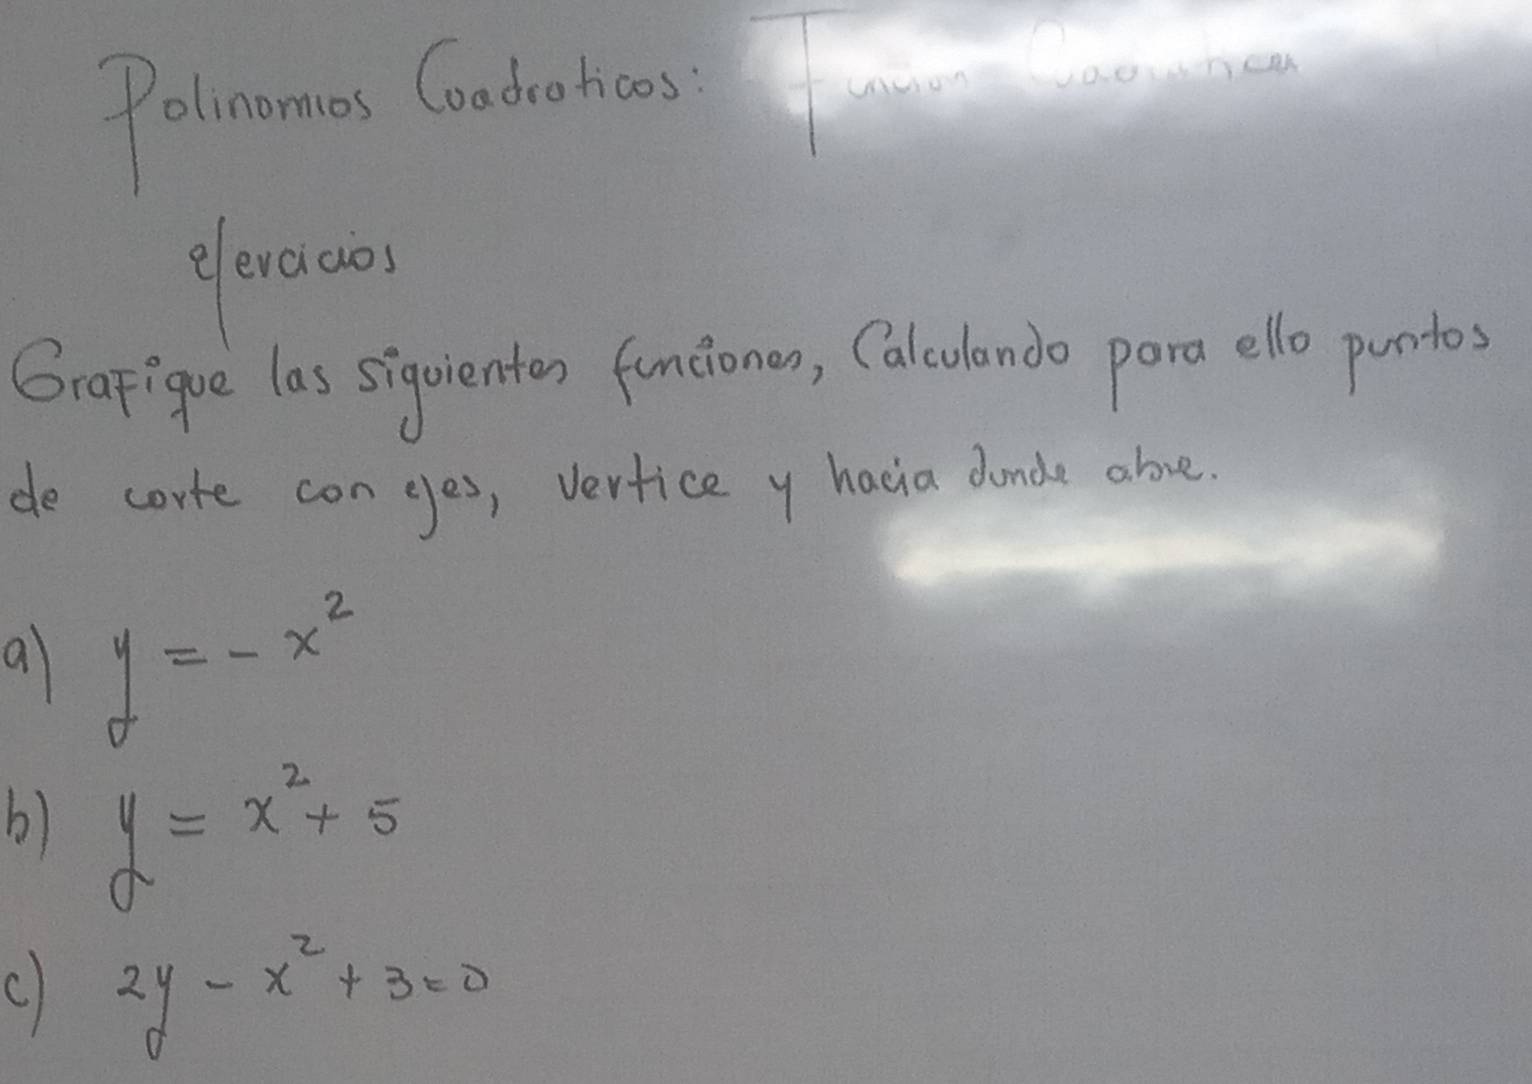 Polinomios Cuadraticos: Funcion Cuadraticas
ejercicios
Grafique las siguientes funciones, Calculando para ello puntos
de corte con ejes, vertice y hacia donde abre.
a) y = - x²
b) y = x² + 5
c) 2y - x² + 3 = 0